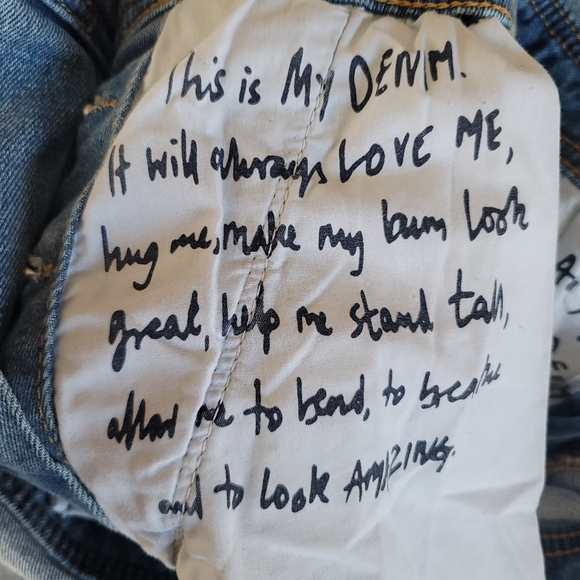 This is My DENIM.
It will always LOVE ME,
hug me, make my bum look
great, help me stand tall,
allow me to bend, to breathe
and to look AMAZING.